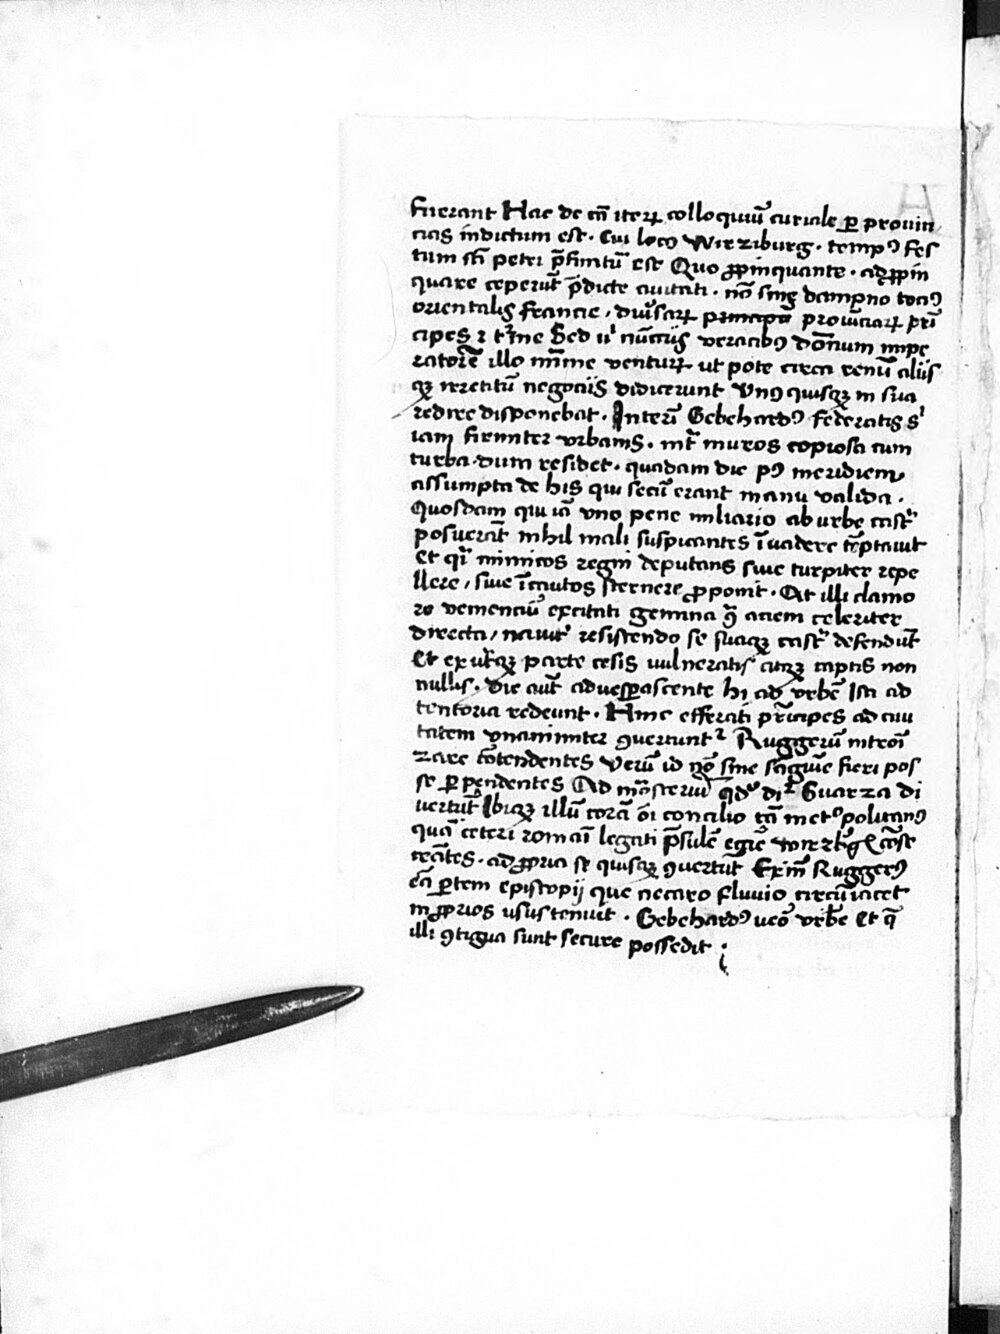 fuerant Hac de cā iteꝝ colloquiū curiale ꝑ prouin
cias indictum est · Cui locꝯ Wirziburg · tempꝯ fes
tum scī petri p̄finitū est Quo ꝓpinquante · adꝓpin
quare ceperūt p̄dicte ciuitati · nō sine dampno tociꝯ
orientalis francie / diūsaꝝ prouīciaꝝ pri
cipes
ratorē illo mīme ventuꝝ ut pote circa renū aliis
qꝫ retentū negociis didicerunt Vnꝯ quisqꝫ in sua
redire disponebat · Interī Gebehardꝯ federatis sꝰ
iam firmiter vrbanis · int̄ muros copiosa cum
turba dum residet · quadam die pꝯ meridiem
assumpta de his qui secū erant manu valida ·
Quosdam qui iā vno pene miliario ab urbe castꝰ
posuerāt nihil mali suspicantes īuadere tēptauit
Et qͥ inimicos regni deputans siue turpiter repe
llere / siue īcautos sternere ꝓponit · At illi clamo
re vemenciū excitati gemina qͣ aciem celeriter
directa / nauitꝰ resistendo se suaqꝫ castꝰ defendūt
Et ex utͣqꝫ parte cesis vulneratis atqꝫ captis non
nullis · die aut̄ aduesꝑascente hi ad vrbē Isti ad
tentoria redeunt · Hinc efferati pͥncipes ad ciui
tatem vnanimiter ꝯuertuntꝰ Ruggerū introni
zare cōtendentes Verū id nō sine sāguīe fieri pos
se ꝑpendentes Ad mōsteriū qdͦ dīꝰ Suarza di
uertūt Ibiqꝫ illū corā oī concilio tā metͦpolitanꝯ
quā ceteri romāi legati p̄sulē
cͣntes · ad ꝓpria se quisqꝫ ꝯuertūt Exīn Ruggerꝯ
eā ꝑtem episcopij que necaro fluuio circūiacet
in ꝓprios usus tenuit · Gebehardꝯ ueō vrbē Et qͣ
illi ꝯtigua sunt secure possedit ;